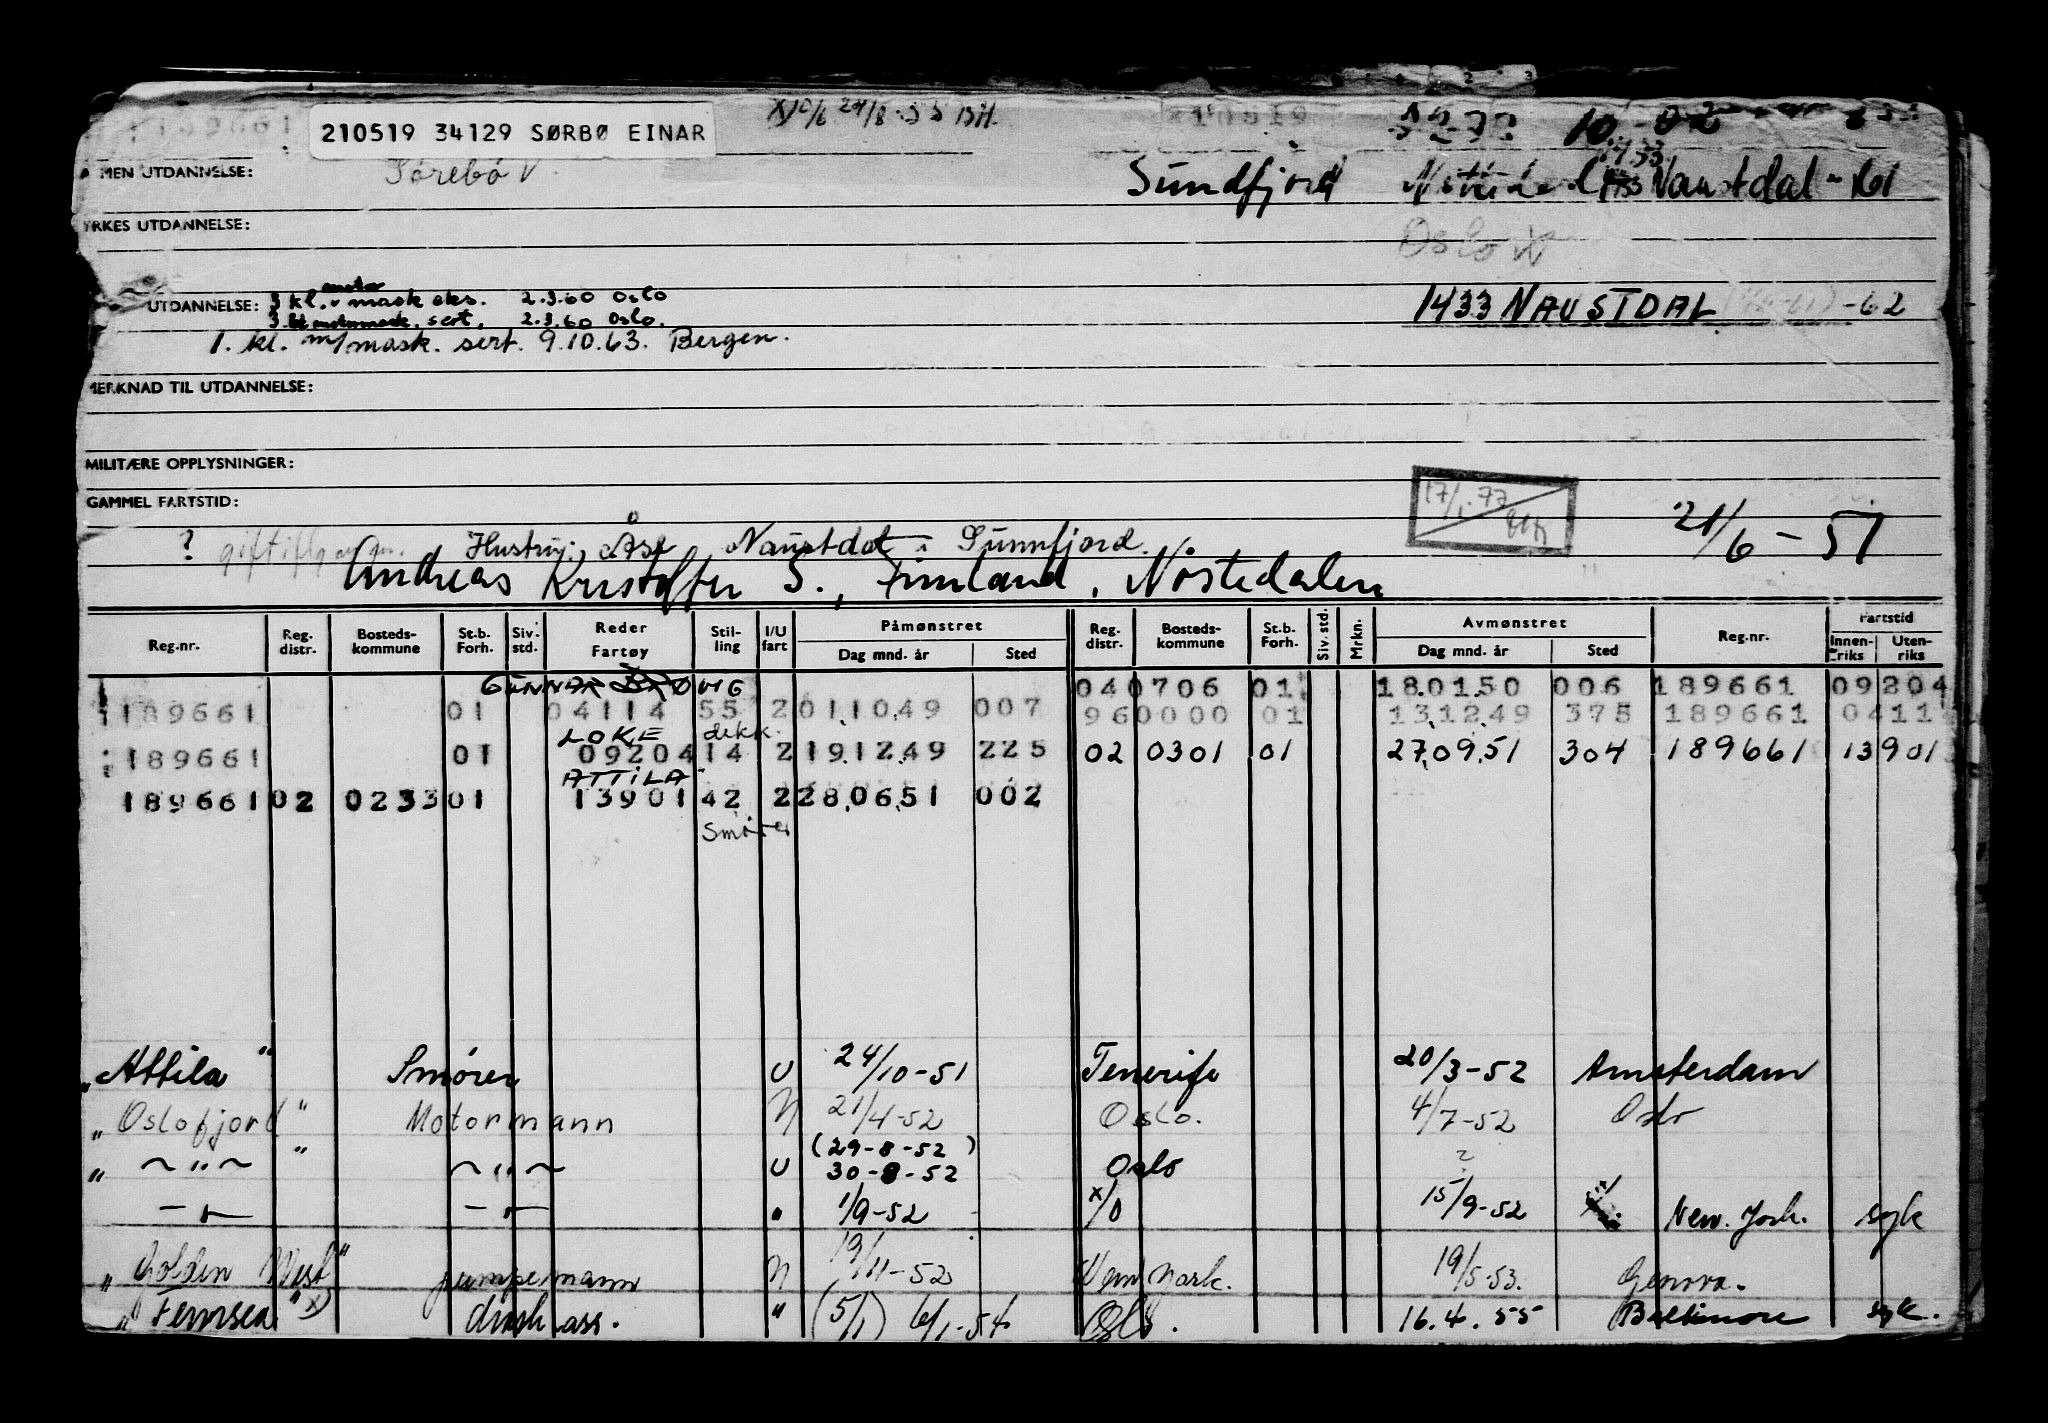 210519 34129 SØRBØ EINAR
MEN UTDANNELSE: Sørebø
Sundfjord Naustdal - 61
RKES UTDANNELSE:
Oslo X
UTDANNELSE: 3 kl. motor mask eks. 2.3.60 Oslo
sert. 2.3.60 Oslo.
1433 NAUSTDAL -62
1. kl. m/mask. sert. 9.10.63. Bergen.
MERKNAD TIL UTDANNELSE:
MILITÆRE OPPLYSNINGER:
GAMMEL FARTSTID:
17/1.77
21/6-51
? Hustru: Åse Naustdal i Sunnfjord.
Andreas Kristoffer S., Fimland, Nøstedalen
Reg.nr. Reg. distr. Bosteds-kommune St.b. Forh. Siv. std. Reder Fartøy Stil-ling I/U fart Påmønstret Dag mnd. år Sted Reg. distr. Bosteds-kommune St.b. Forh. Siv. std. Mrkn. Avmønstret Dag mnd. år Sted Reg.nr. Fartstid Innen-riks Uten-riks
GUNNAR BROVIG 040706 01 180150 006 189661 09204
189661 01 04114 55 2 011049 007 960000 01 131249 375 189661 0411
LOKE dekk.
189661 01 09204 14 2 191249 225 02 0301 01 270951 304 189661 13901
ATTILA
189661 02 0233 01 13901 42 2 280651 002
Smører
"Attila" Smører U 24/10-51 Tenerife 20/3-52 Amsterdam
"Oslofjord" Motormann N 21/4-52 Oslo. 4/7-52 Oslo
" ~"~ " ~"~ U (29-8-52) 30-8-52 Oslo ?
-"- -"- " 1/9-52 x/0 15/9-52 New York. syk
"Golden West" pumpemann N 19/11-52 New York. 19/5-53. Genova.
"Fernsea" x) ass. " (5/1) 6/1-54 Oslo. 16.4.55 Baltimore syk.